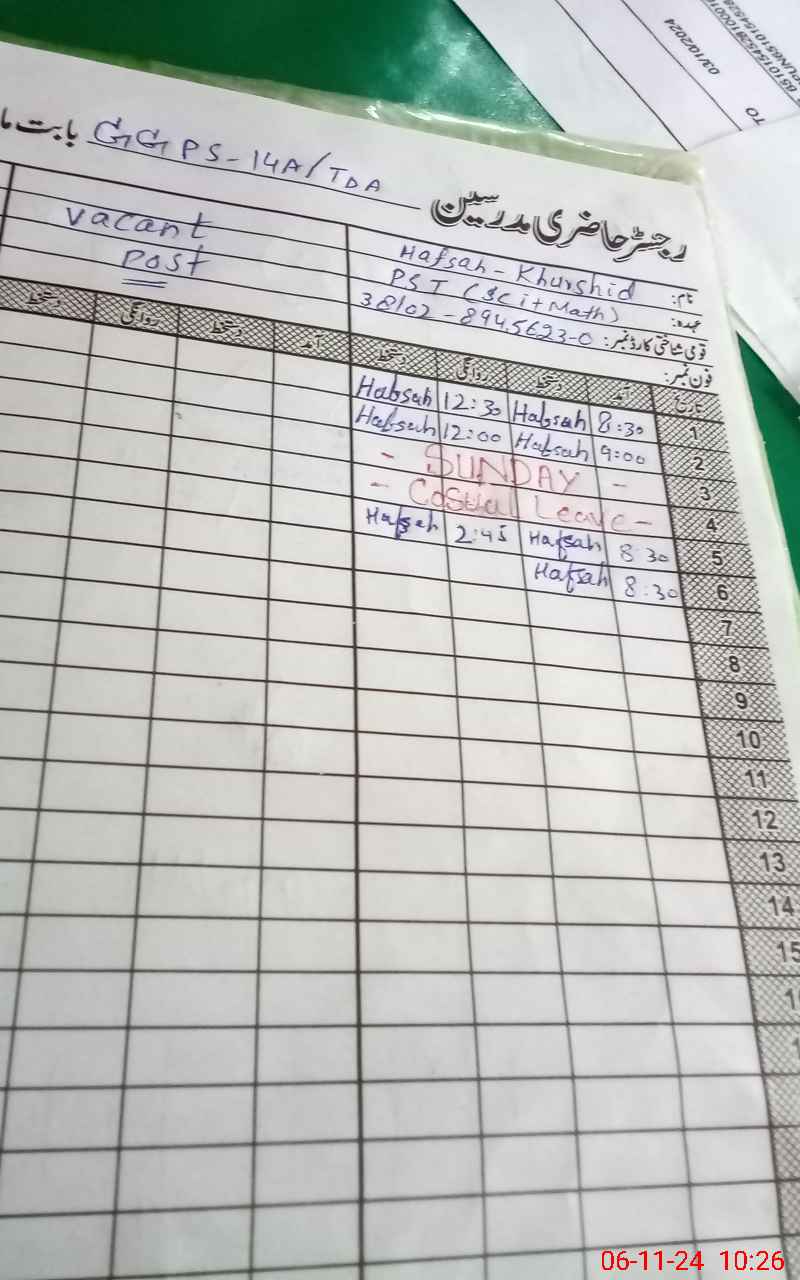 03/10/2024
TO
بابت ما GGPS-14A/TDA رجسٹر حاضری مدرسین
نام: Hafsah-Khurshid
عہدہ: PST (Sci+Math)
قومی شناختی کارڈ نمبر: 38102-8945623-0
فون نمبر:
vacant
post
تاریخ آمد دستخط روانگی دستخط آمد دستخط روانگی دستخط
1 8:30 Hafsah 12:30 Hafsah
2 9:00 Hafsah 12:00 Hafsah
3 - SUNDAY -
4 - Casual Leave -
5 8:30 Hafsah 2:45 Hafsah
6 8:30 Hafsah
7
8
9
10
11
12
13
14
15
06-11-24 10:26